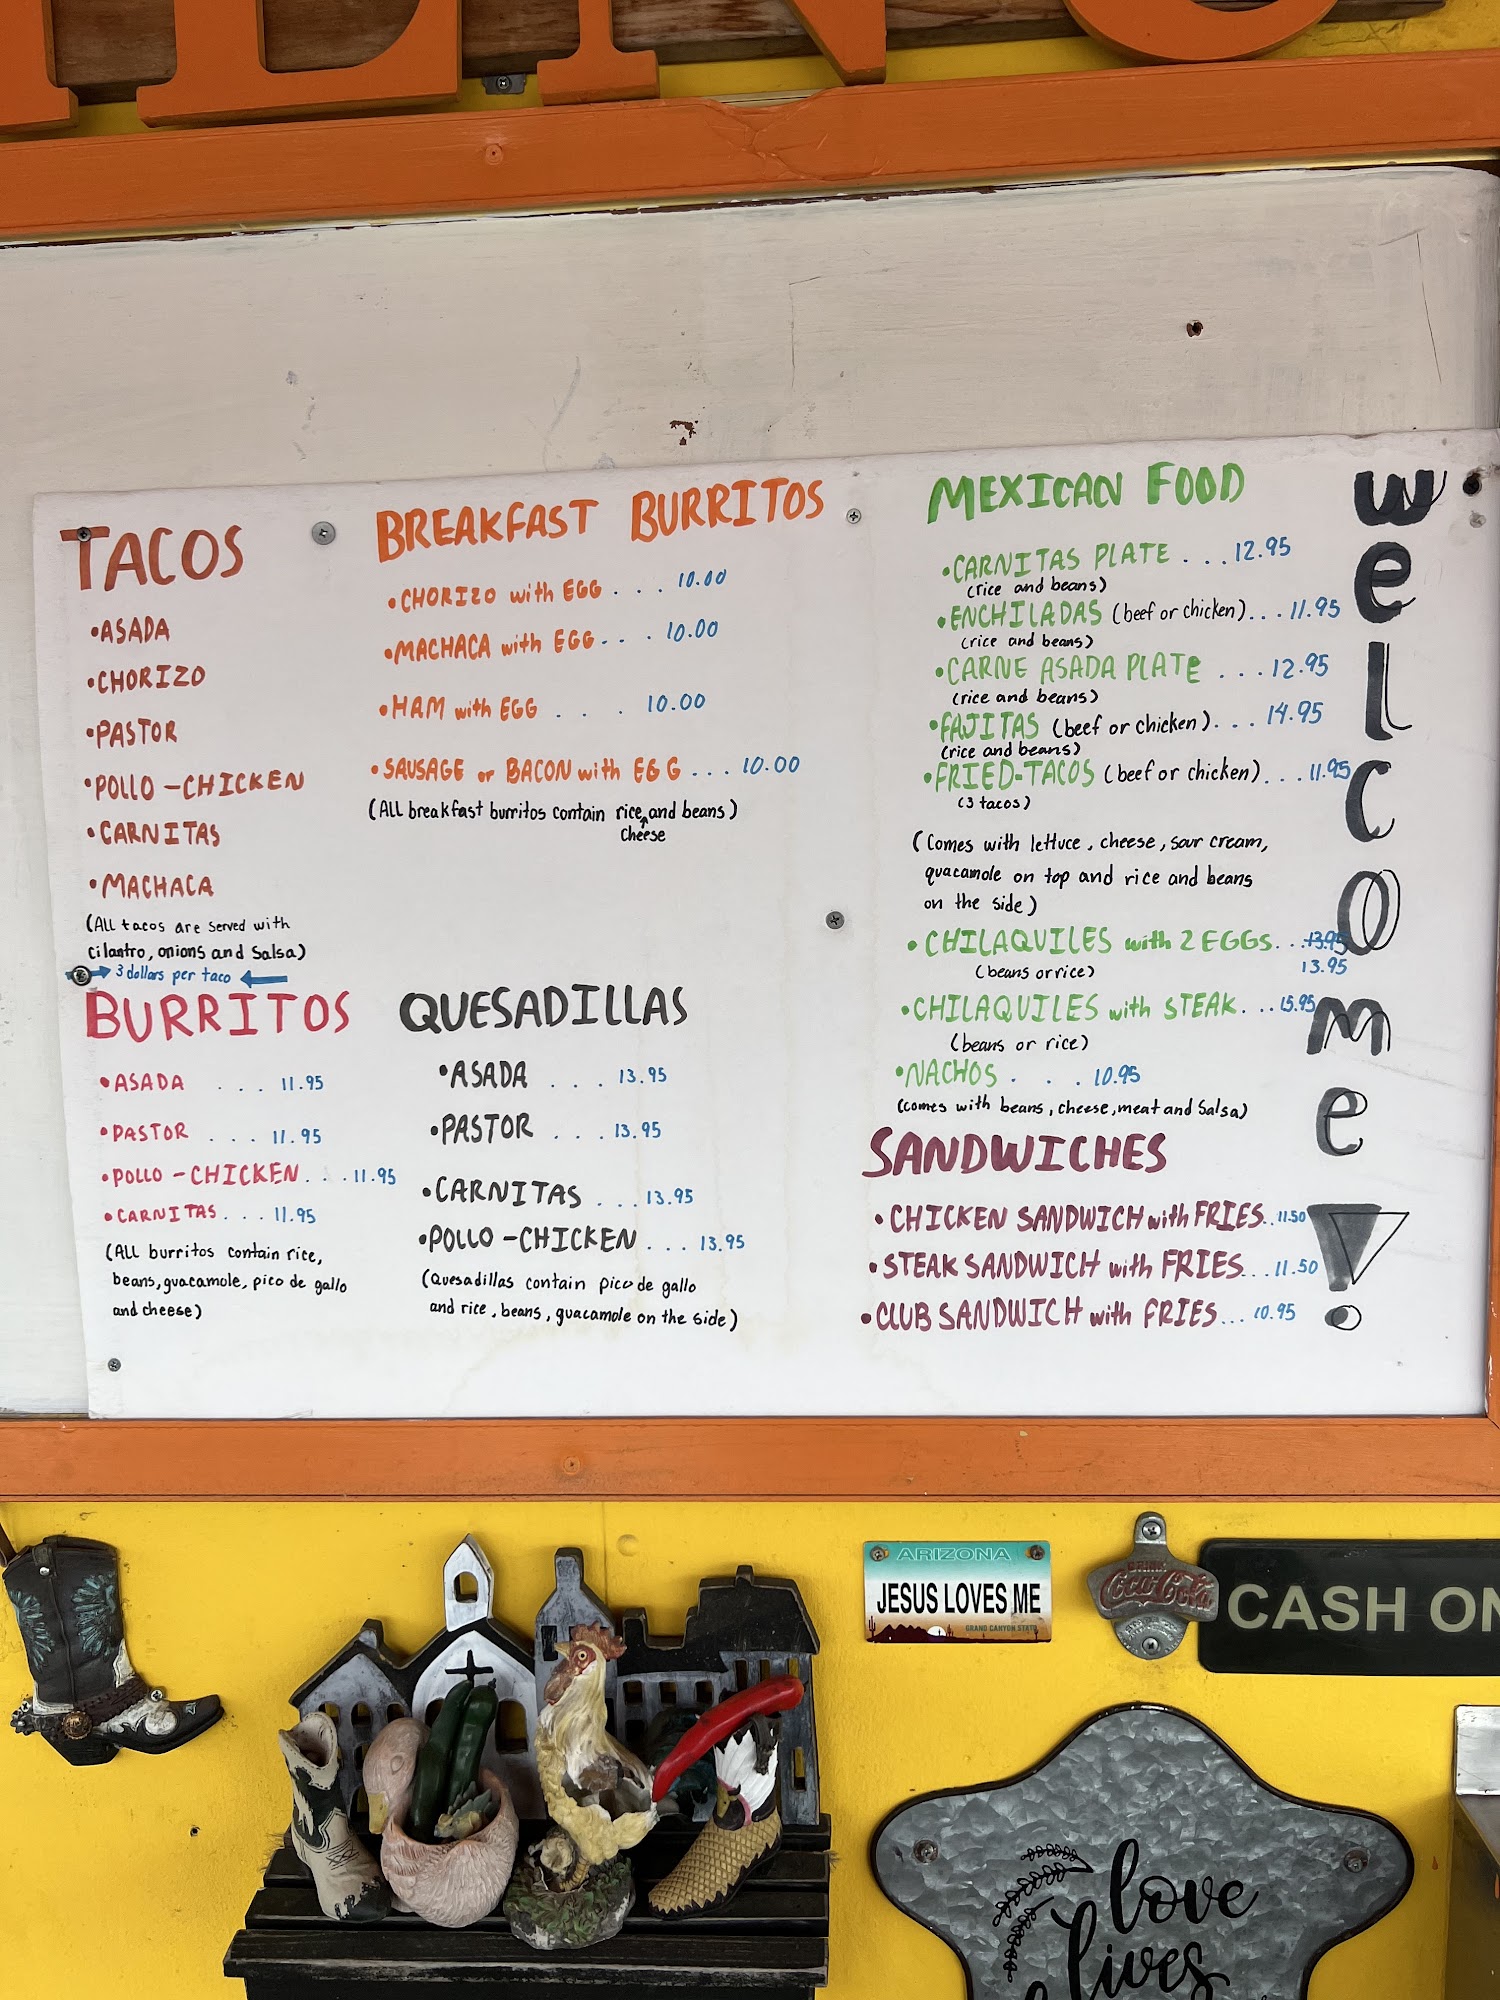 TACOS
•ASADA
•CHORIZO
•PASTOR
•POLLO-CHICKEN
•CARNITAS
•MACHACA
(All tacos are served with
cilantro, onions and Salsa)
→ 3 dollars per taco ←
BREAKFAST BURRITOS
•CHORIZO with EGG . . . 10.00
•MACHACA with EGG . . . 10.00
•HAM with EGG . . . 10.00
•SAUSAGE or BACON with EGG ... 10.00
(All breakfast burritos contain rice and beans)
cheese
BURRITOS
•ASADA . . . 11.95
•PASTOR . . . 11.95
•POLLO-CHICKEN . . . 11.95
•CARNITAS . . . 11.95
(All burritos contain rice,
beans, guacamole, pico de gallo
and cheese)
QUESADILLAS
•ASADA . . . 13.95
•PASTOR . . . 13.95
•CARNITAS . . . 13.95
•POLLO-CHICKEN . . . 13.95
(Quesadillas contain pico de gallo
and rice, beans, guacamole on the side)
MEXICAN FOOD
•CARNITAS PLATE . . . 12.95
(rice and beans)
•ENCHILADAS (beef or chicken) . . . 11.95
(rice and beans)
•CARNE ASADA PLATE . . . 12.95
(rice and beans)
•FAJITAS (beef or chicken) . . . 14.95
(rice and beans)
•FRIED-TACOS (beef or chicken) . . . 11.95
(3 tacos)
(Comes with lettuce, cheese, sour cream,
guacamole on top and rice and beans
on the side)
•CHILAQUILES with 2 EGGS . . . 13.95
13.95
(beans or rice)
•CHILAQUILES with STEAK . . . 15.95
(beans or rice)
•NACHOS . . . 10.95
(comes with beans, cheese, meat and Salsa)
SANDWICHES
•CHICKEN SANDWICH with FRIES .. 11.50
•STEAK SANDWICH with FRIES ... 11.50
•CLUB SANDWICH with FRIES ... 10.95
welcome!
ARIZONA
JESUS LOVES ME
GRAND CANYON STATE
DRINK
Coca-Cola
CASH ON
love
lives